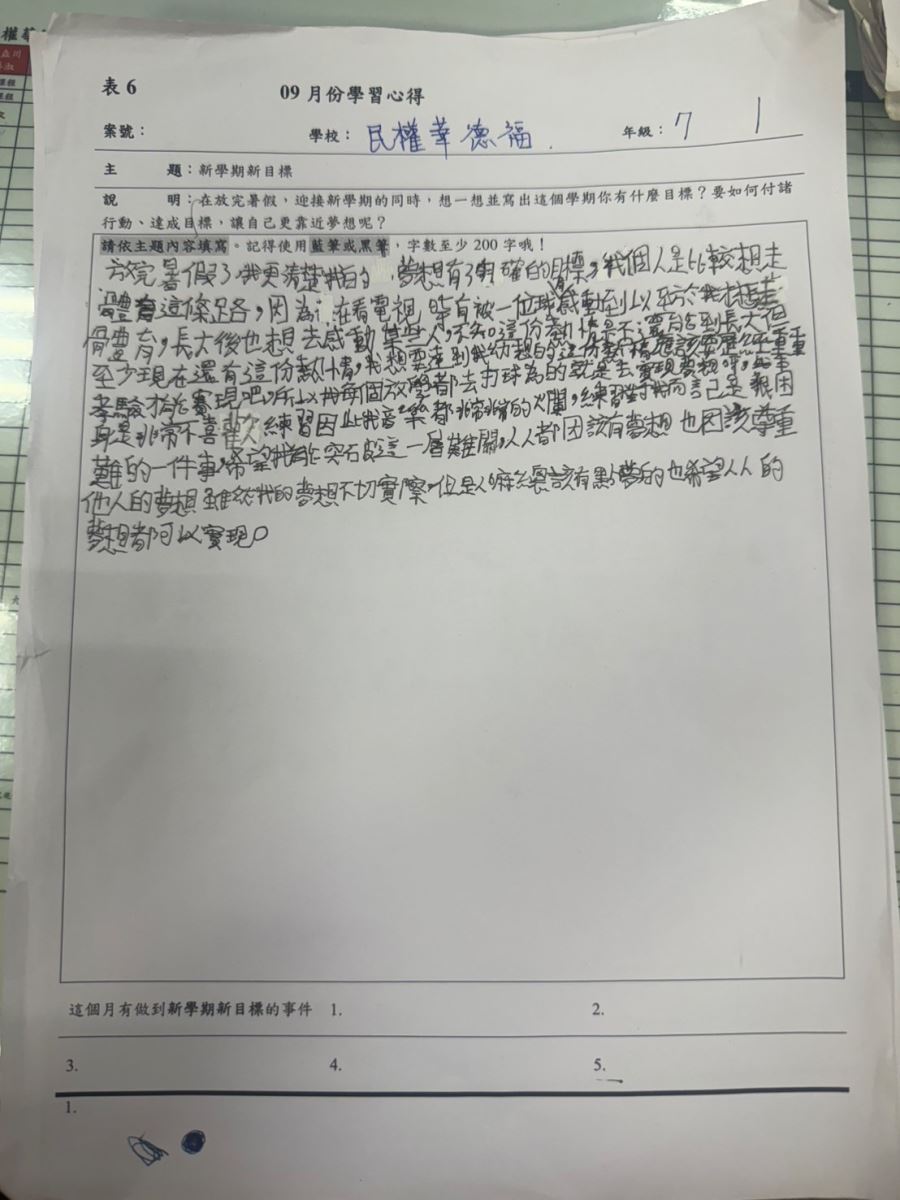 表 6
09 月份學習心得
案號： 學校： 民權華德福 年級： 7 1
主 題：新學期新目標
說 明：在放完暑假，迎接新學期的同時，想一想並寫出這個學期你有什麼目標？要如何付諸
行動、達成目標，讓自己更靠近夢想呢？
請依主題內容填寫。記得使用藍筆或黑筆，字數至少 200 字哦！
放完暑假了，我更清楚我的 夢想有了明確的目標，我個人是比較想走
體育這條路，因為 在看電視 時有被一位球 感動到以至於我想走
體育，長大後也想去感動某些人，不知這份熱情是不 會 到長大但
至少現在還有這份熱情，我想要達到我幻想的這份 應該要歷經重重
考驗才能實現吧，所以我每個放學都去打球為的就是去實現夢想呀，
是非常不喜歡練習因此我音樂都非常非常的爛，練習對我而言已是 很困
難的一件事，希望我能突破這一層難關，人人都因該有夢想 也因該尊重
他人的夢想 雖然我的夢想不切實際，但是人嘛總該有點夢的 也希望人人的
夢想都可以實現。
這個月有做到新學期新目標的事件 1. 2.
3. 4. 5.
1.